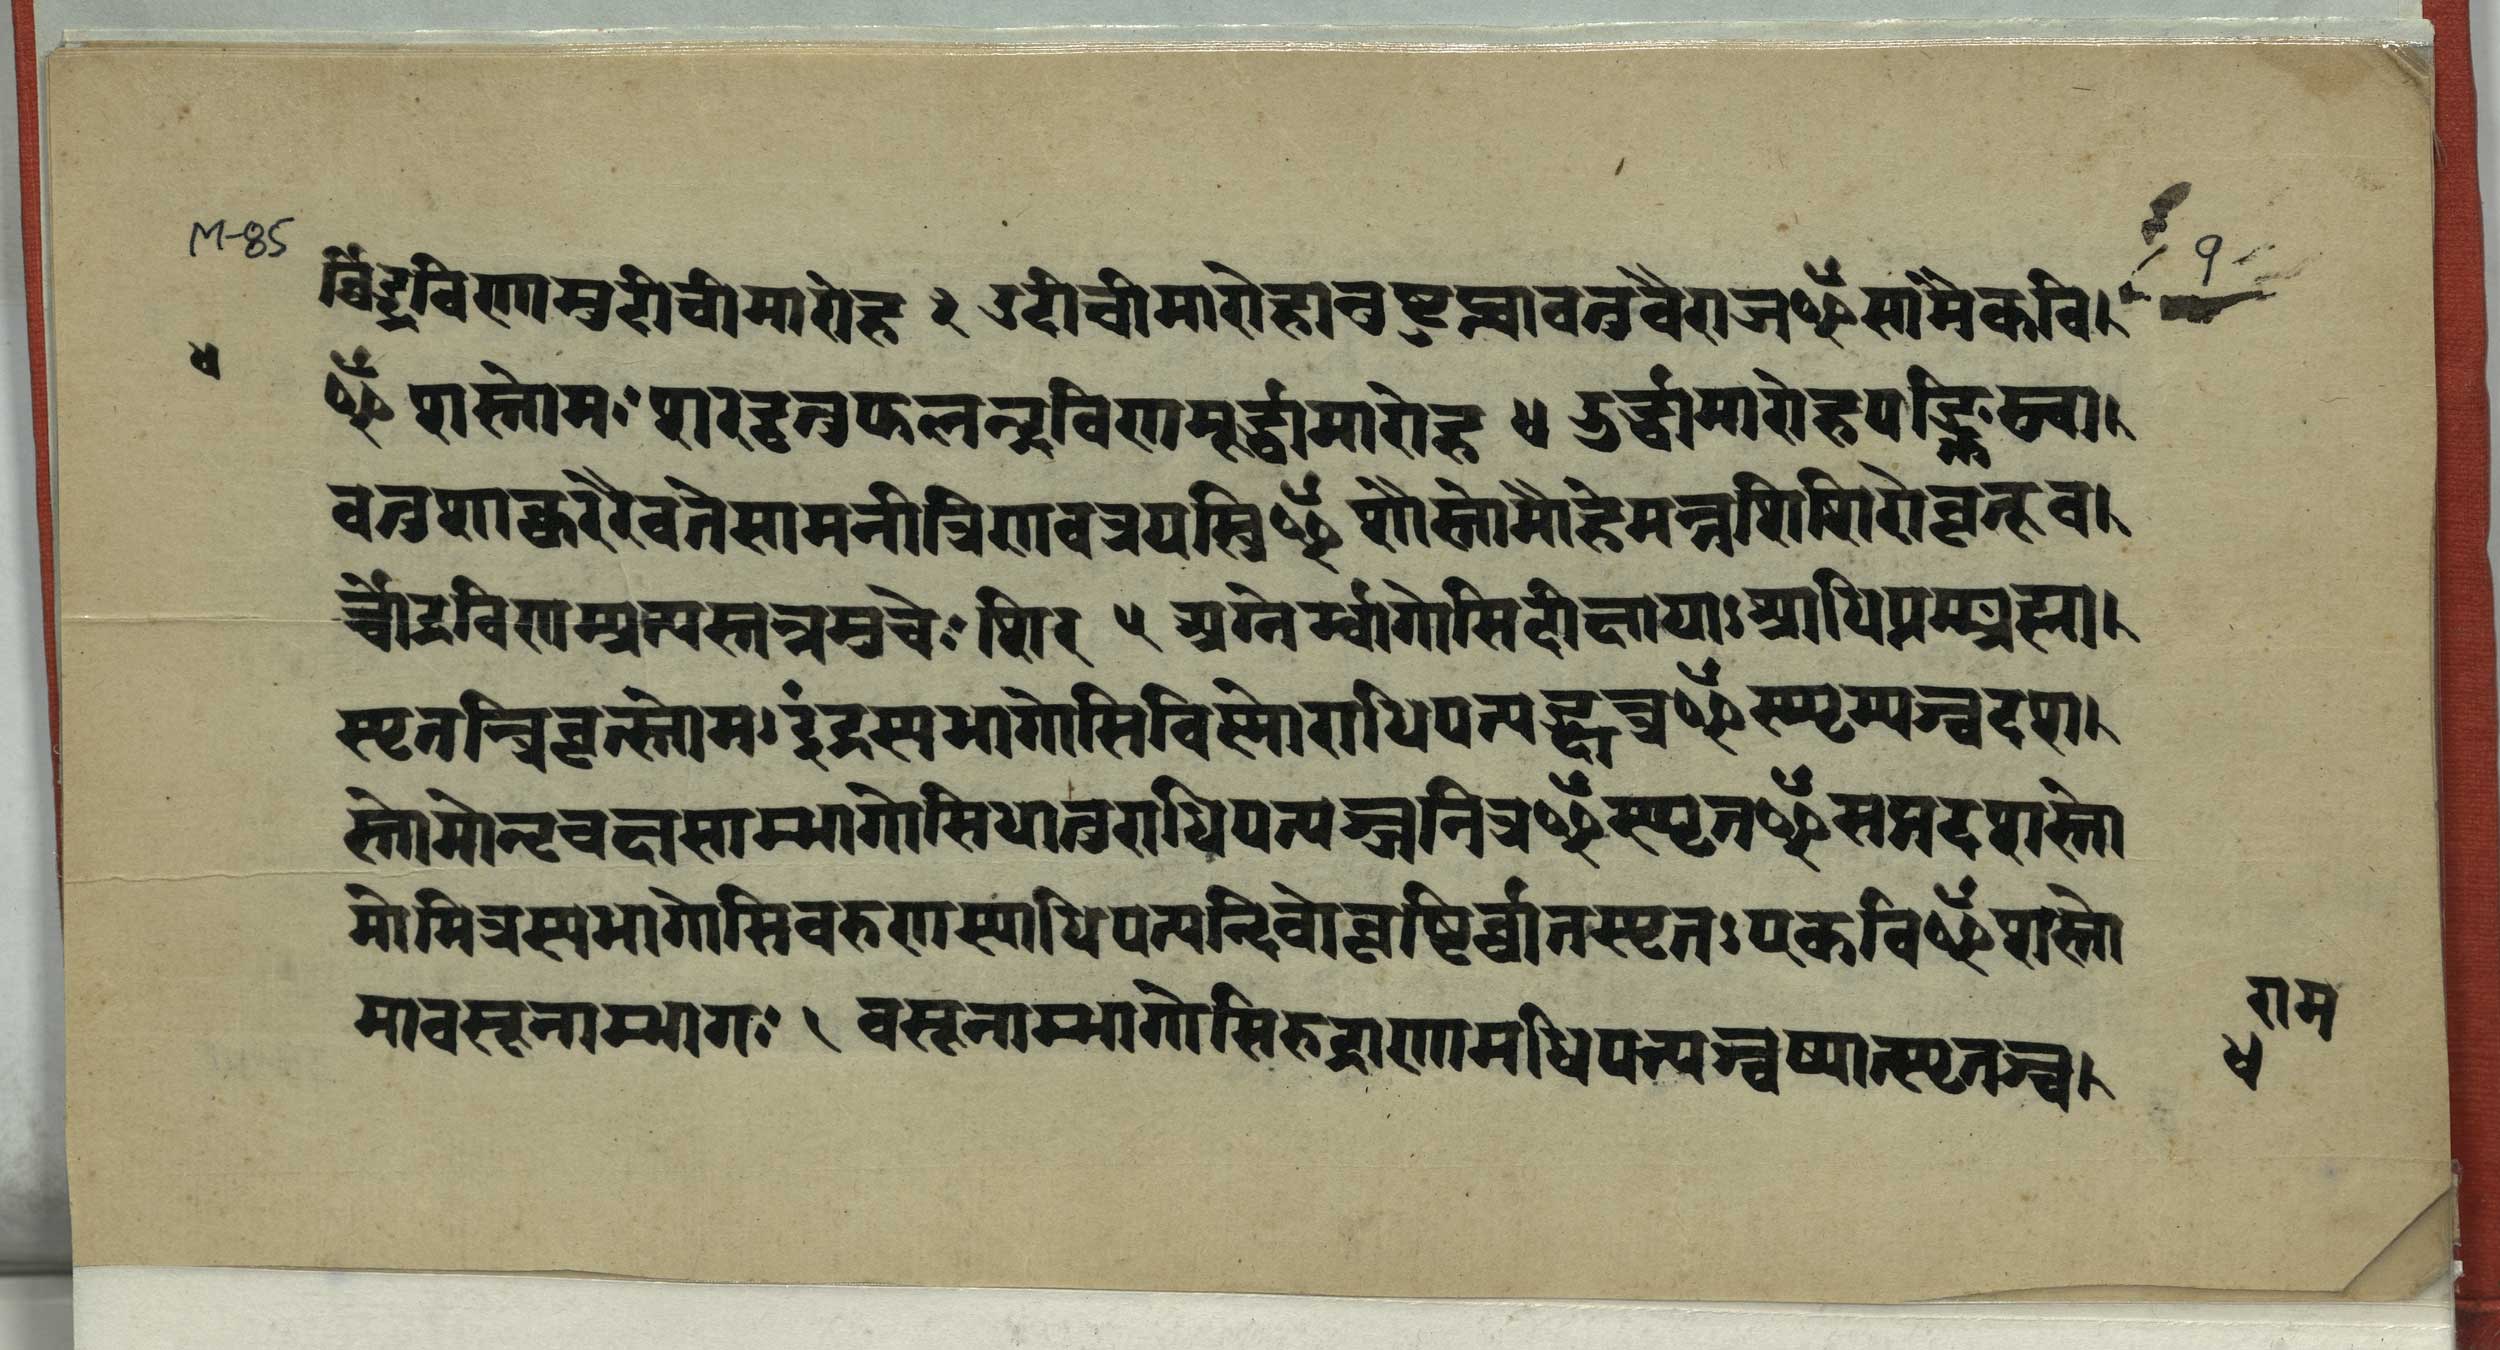 M-85
१
र्विड्द्रविणमुदीचीमारोह ३ उदीचीमारोहानुष्टुप्त्वावतुवैराजꣳसामैकवि।
४
ꣳशस्तोमः शरदृतुफलन्द्रविणमूर्द्ध्वामारोह ४ ऊर्द्ध्वामारोहपङ्क्तिस्त्वा।
वतुशाक्वररैवतेसामनीत्रिणवत्रयस्त्रिꣳशौस्तोमौहेमन्तशिशिरावृतूव।
र्च्चोद्रविणम्प्रत्यस्तन्नमुचेः शिर ५ अग्नेर्भागोसिदीक्षायाऽआधिपत्यम्ब्रह्म।
स्पृतन्त्रिवृत्स्तोमऽइंद्रस्यभागोसिविष्णोराधिपत्यङ्क्षत्रꣳस्पृतम्पञ्चदश।
स्तोमोनृचक्षसाम्भागोसिधातुराधिपत्यञ्जनित्रꣳस्पृतꣳसप्तदशस्तो
मोमित्रस्यभागोसिवरुणस्याधिपत्यन्दिवोवृष्टिर्व्वातस्पृतऽएकविꣳशस्तो
मोवसूनाम्भागः । वसूनाम्भागोसिरुद्राणामधिपत्यञ्चतुष्पात्स्पृतञ्च।
राम
४